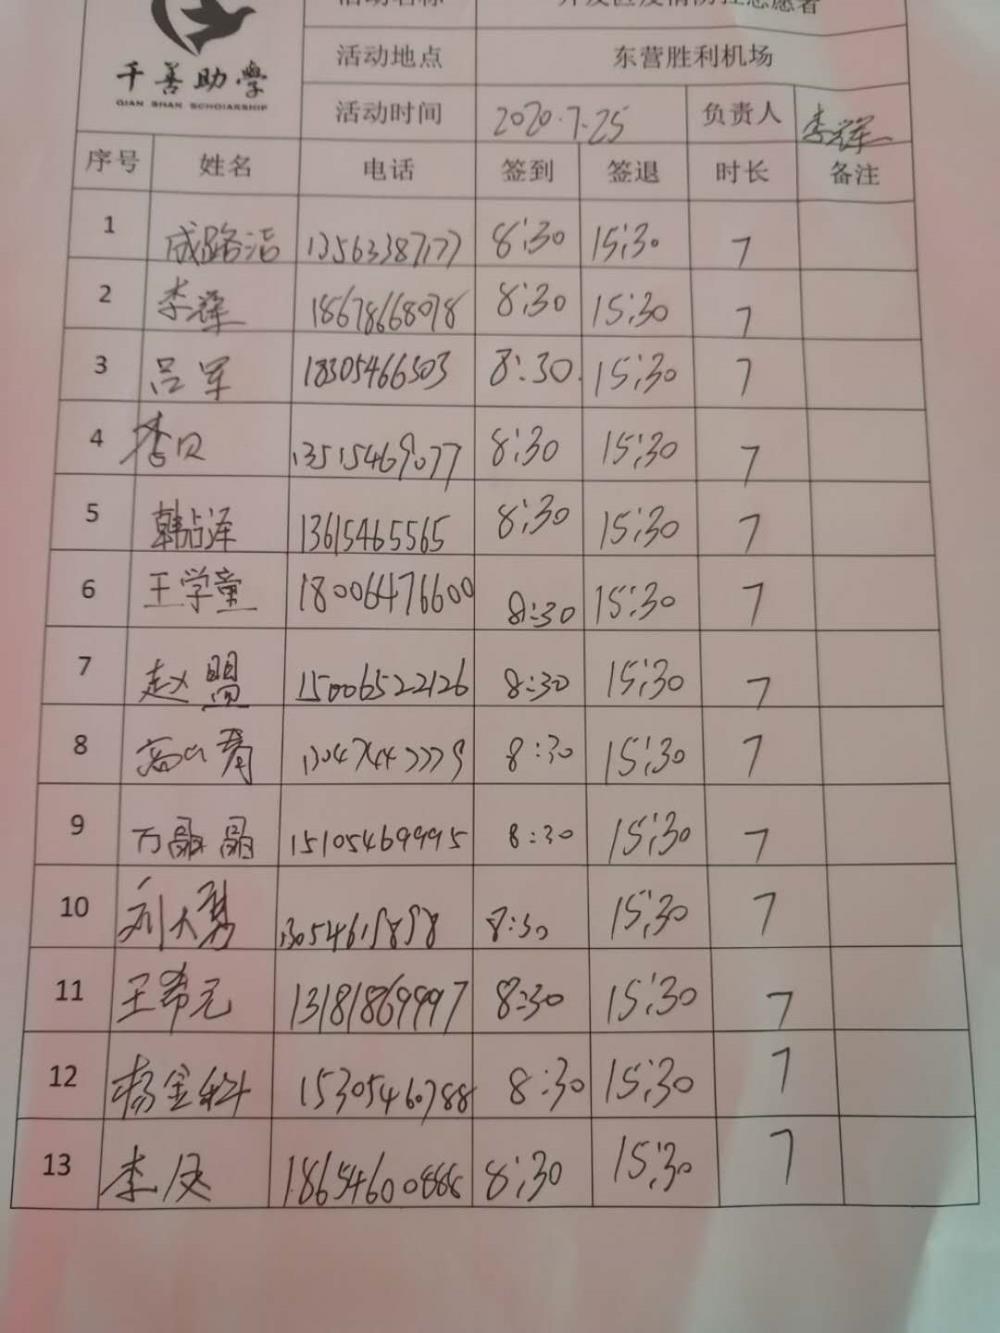 活动名称 开发区疫情防控志愿者
千善助学
QIAN SHAN SCHOLARSHIP
活动地点 东营胜利机场
活动时间 2020.7.25 负责人 李辉
序号 姓名 电话 签到 签退 时长 备注
1 成路洁 13563387177 8:30 15:30 7
2 李辉 18678668078 8:30 15:30 7
3 吕军 18305466303 8:30 15:30 7
4 13515469077 8:30 15:30 7
5 韩占泽 13615465565 8:30 15:30 7
6 王学童 18006476600 8:30 15:30 7
7 赵盟 15006522126 8:30 15:30 7
8 8:30 15:30 7
9 万晶晶 15105469995 8:30 15:30 7
10 刘大勇 8:30 15:30 7
11 王希元 13181869997 8:30 15:30 7
12 杨金科 15305460788 8:30 15:30 7
13 18654600888 8:30 15:30 7